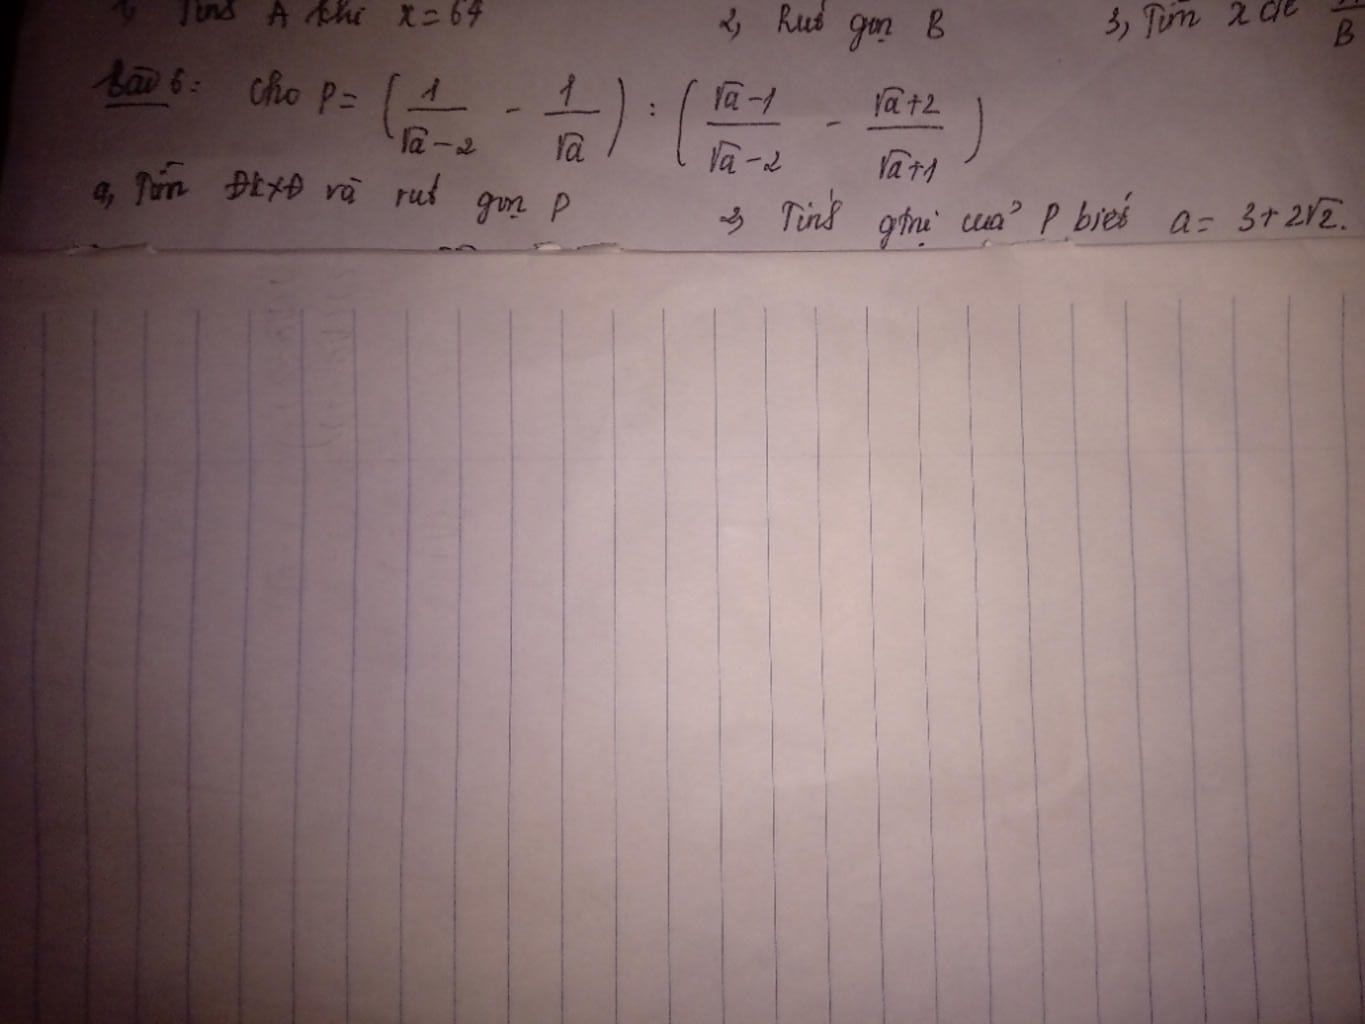 1, Tính A khi x = 64 2, Rút gọn B 3, Tìm x để A/B
Bài 6: Cho P = (1/(√a-2) - 1/√a) : ((√a-1)/(√a-2) - (√a+2)/(√a+1))
a, Tìm ĐKXĐ và rút gọn P 2, Tính gtrị của P biết a = 3+2√2.